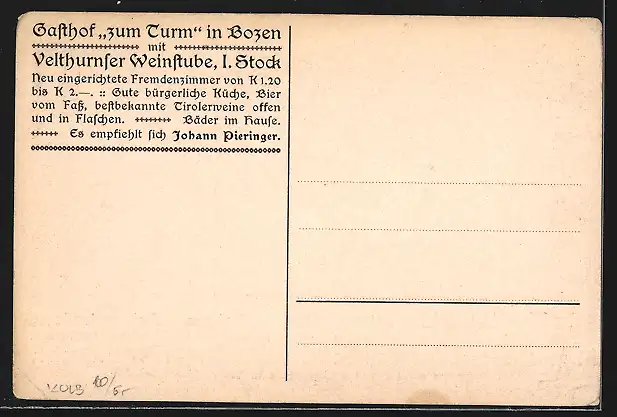 Gasthof „zum Turm“ in Bozen
mit
Velthurnser Weinstube, I. Stock
Neu eingerichtete Fremdenzimmer von K 1.20
bis K 2.—. :: Gute bürgerliche Küche, Bier
vom Faß, bestbekannte Tirolerweine offen
und in Flaschen. Bäder im Hause.
Es empfiehlt sich Johann Pieringer.